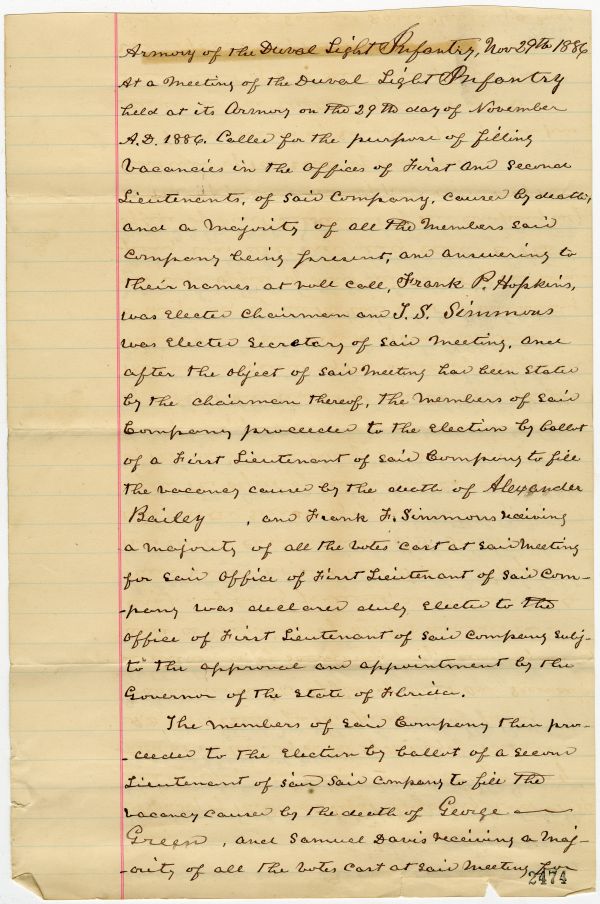 Armory of the Duval Light Infantry, Nov 29th 1886
At a Meeting of the Duval Light Infantry
held at its Armory on the 29th day of November
A.D. 1886. Called for the purpose of filling
Vacancies in the Offices of First and Second
Lieutenants, of Said Company, caused by death,
and a Majority of all the Members Said
Company being present, and answering to
their names at roll call, Frank P. Hopkins,
was Elected Chairman and T. S. Simmons
was Elected Secretary of Said Meeting, and
after the object of Said Meeting had been Stated
by the Chairman thereof, the Members of Said
Company proceeded to the Election by ballot
of a First Lieutenant of Said Company to fill
the vacancy caused by the death of Alexander
Bailey , and Frank F. Simmons receiving
a Majority of all the Votes Cast at Said Meeting
for Said Office of First Lieutenant of Said Com-
-pany was declared duly Elected to the
Office of First Lieutenant of Said Company Subj-
to the approval and appointment by the
Governor of the State of Florida.
The Members of Said Company then pro-
-ceeded to the Election by ballot of a Second
Lieutenant of Said Said Company to fill the
vacancy caused by the death of George
Green , and Samuel Davis receiving a Maj-
-ority of all the Votes Cast at Said Meeting for
2474